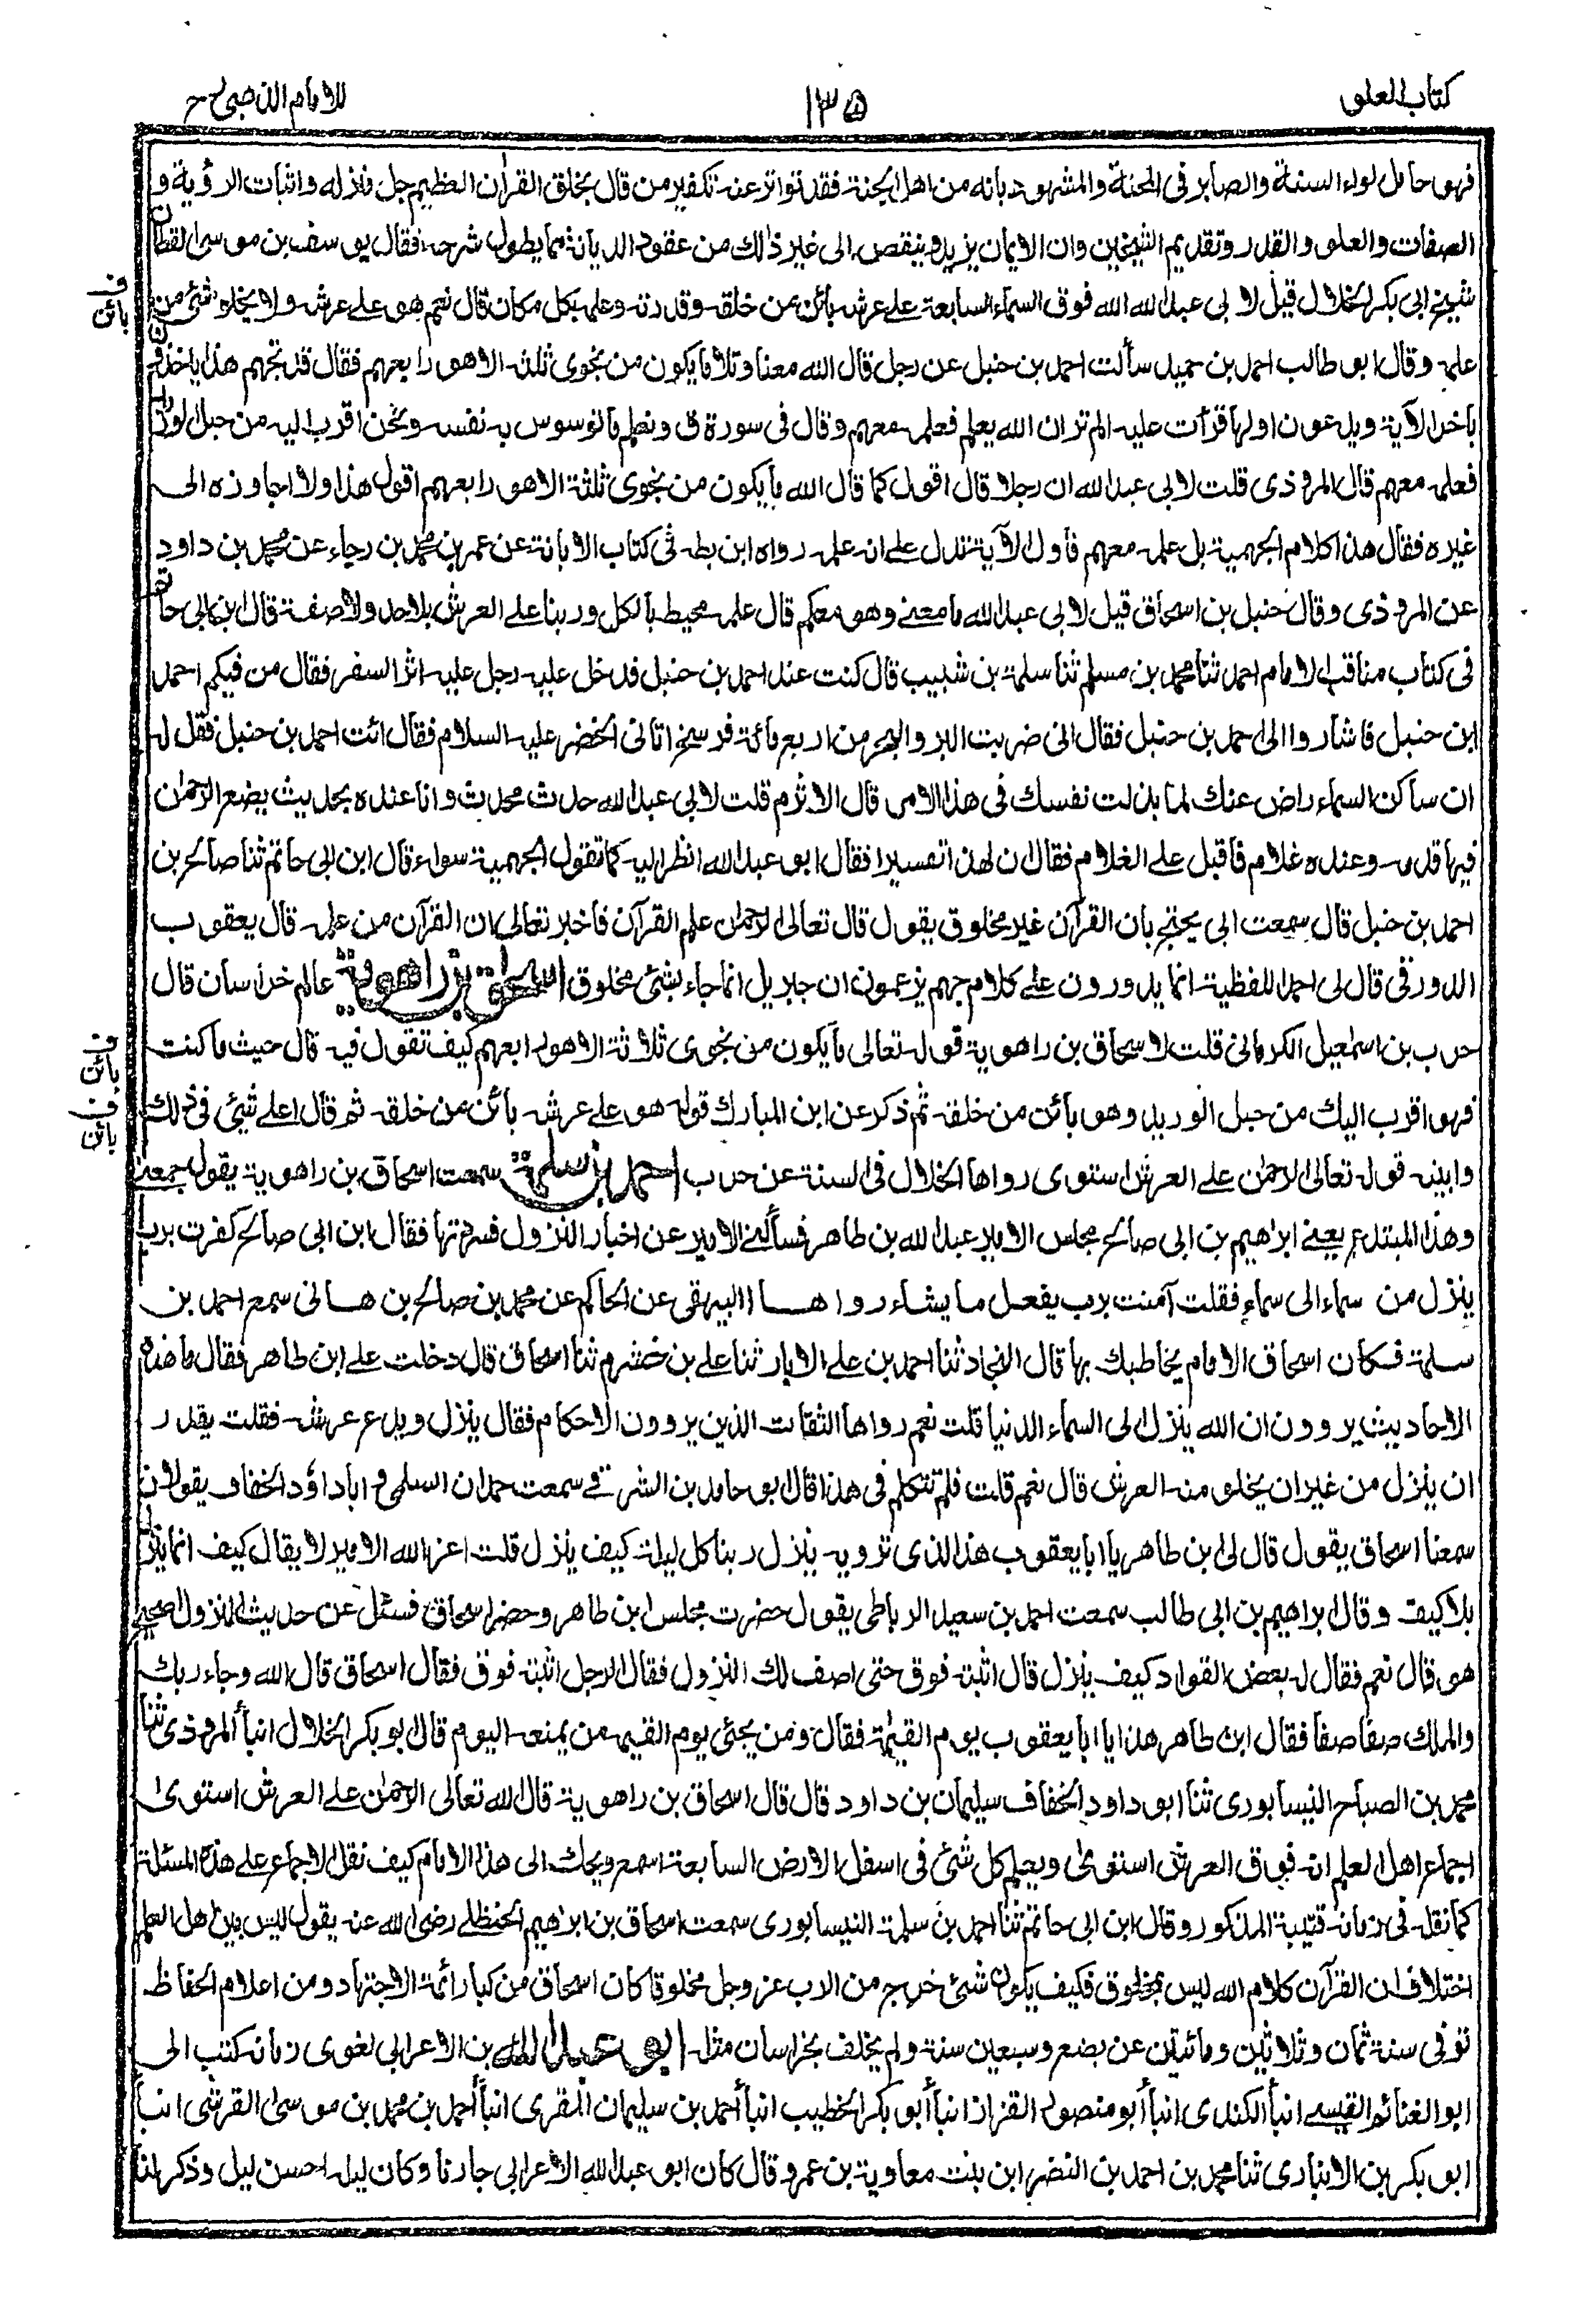 كتاب العلو
١٣٥
للامام الذهبي رح
فهو حامل لواء السنة والصابر فى المحنة والمشهود بانه من اهل الجنة فقد تواتر عنه تكفير من قال بخلق القرآن العظيم جل منزله واثبات الرؤية و
الصفات والعلو والقدر وتقديم الشيخين وان الايمان يزيد وينقص الى غير ذلك من عقود الديانة مما يطول شرحه فقال يوسف بن موسى القطان
شيخ ابى بكر الخلال قيل لابى عبد الله الله فوق السماء السابعة على عرشه بائن من خلقه وقدرته وعلمه بكل مكان قال نعم هو على عرشه ولا يخلو شئ من
ف بائن
علمه وقال ابو طالب احمد بن حميد سألت احمد بن حنبل عن رجل قال الله معنا وتلا ما يكون من نجوى ثلثة الا هو رابعهم فقال قد تجهم هذا ياخذون
باخر الآية ويدعون اولها قرأت عليه الم تر ان الله يعلم فعلمه معهم وقال فى سورة ق ونعلم ما توسوس به نفسه ونحن اقرب اليه من حبل الوريد
فعلمه معهم قال المروذى قلت لابى عبد الله ان رجلا قال اقول كما قال الله ما يكون من نجوى ثلثة الا هو رابعهم اقول هذا ولا اجاوزه الى
غيره فقال هذا كلام الجهمية بل علمه معهم فاول الآية تدل على انه علمه رواه ابن بطة فى كتاب الابانة عن عمر بن محمد بن رجاء عن محمد بن داود
عن المروذى وقال حنبل بن اسحاق قيل لابى عبد الله ما معنى وهو معكم قال علمه محيط بالكل وربنا على العرش بلا حد ولا صفة قال ابن ابى حاتم
فى كتاب مناقب الامام احمد ثنا محمد بن مسلم ثنا سلمة بن شبيب قال كنت عند احمد بن حنبل فدخل عليه رجل عليه اثر السفر فقال من فيكم احمد
ابن حنبل فاشاروا الى احمد بن حنبل فقال انى ضربت البر والبحر من اربع مائة فرسخ اتانى الخضر عليه السلام فقال ائت احمد بن حنبل فقل له
ان ساكن السماء راض عنك لما بذلت نفسك فى هذا الامر قال الاثرم قلت لابى عبد الله حدث محدث وانا عنده بحديث يضع الرحمن
فيها قدمه وعنده غلام فاقبل على الغلام فقال ان لهذا تفسيرا فقال ابو عبد الله انظر اليه كما تقول الجهمية سواء قال ابن ابى حاتم ثنا صالح بن
احمد بن حنبل قال سمعت ابى يحتج بان القرآن غير مخلوق يقول قال تعالى الرحمن علم القرآن فاخبر تعالى ان القرآن من علمه قال يعقوب
الدورقى قال لى احمد اللفظية انما يدورون على كلام جهم يزعمون ان جبريل انما جاء بشئ مخلوق اسحاق بن راهوية عالم خراسان قال
حرب بن اسمعيل الكرمانى قلت لاسحاق بن راهوية قوله تعالى ما يكون من نجوى ثلاثة الا هو رابعهم كيف تقول فيه قال حيث ما كنت
ف بائن
فهو اقرب اليك من حبل الوريد وهو بائن من خلقه ثم ذكر عن ابن المبارك قوله هو على عرشه بائن من خلقه ثم قال اعلى شئ فى ذلك
ف بائن
وابينه قوله تعالى الرحمن على العرش استوى رواها الخلال فى السنة عن حرب احمد بن سلمة سمعت اسحاق بن راهوية يقول جمعنى
وهذا المبتدع يعنى ابراهيم بن ابى صالح مجلس الامير عبد الله بن طاهر فسألنى الامير عن اخبار النزول فسردتها فقال ابن ابى صالح كفرت برب
ينزل من سماء الى سماء فقلت آمنت برب يفعل ما يشاء رواها البيهقى عن الحاكم عن محمد بن صالح بن هانى سمع احمد بن
سلمة فكان اسحاق الامام يخاطبك بها قال النجاد ثنا احمد بن على الابار ثنا على بن خشرم ثنا اسحاق قال دخلت على ابن طاهر فقال ما هذه
الاحاديث يروون ان الله ينزل الى السماء الدنيا قلت نعم رواها الثقات الذين يروون الاحكام فقال ينزل ويدع عرشه فقلت يقدر
ان ينزل من غير ان يخلو منه العرش قال نعم قلت فلم تتكلم فى هذا قال ابو حامد بن الشرقى سمعت حمدان السلمى و اباداؤد الخفاف يقولان
سمعنا اسحاق يقول قال لى ابن طاهر يا ابا يعقوب هذا الذى ترويه ينزل ربنا كل ليلة كيف ينزل قلت اعز الله الامير لا يقال كيف انما ينزل
بلا كيف وقال ابراهيم بن ابى طالب سمعت احمد بن سعيد الرباطى يقول حضرت مجلس ابن طاهر وحضر اسحاق فسئل عن حديث النزول اصحيح
هو قال نعم فقال له بعض القواد كيف ينزل قال اثبته فوق حتى اصف لك النزول فقال الرجل اثبته فوق فقال اسحاق قال الله وجاء ربك
والملك صفا صفا فقال ابن طاهر هذا يا ابا يعقوب يوم القيمة فقال ومن يجئ يوم القيمة من يمنعه اليوم قال ابو بكر الخلال انبأ المروذى ثنا
محمد بن الصباح النيسابورى ثنا ابو داود الخفاف سليمان بن داود قال قال اسحاق بن راهوية قال الله تعالى الرحمن على العرش استوى
اجماع اهل العلم انه فوق العرش استوى ويعلم كل شئ فى اسفل الارض السابعة اسمع ويحك الى هذا الامام كيف نقل الاجماع على هذه المسئلة
كما نقله فى زمانه قتيبة المذكور وقال ابن ابى حاتم ثنا احمد بن سلمة النيسابورى سمعت اسحاق بن ابرهيم الحنظلى رضى الله عنه يقول ليس بين اهل العلم
اختلاف ان القرآن كلام الله ليس بمخلوق فكيف يكون شئ خرج من الرب عز وجل مخلوقا كان اسحاق من كبار ائمة الاجتهاد ومن اعلام الحفاظ
توفى سنة ثمان وثلاثين ومائتين عن بضع وسبعين سنة ولم يخلف بخراسان مثله ابو عبد الله بن الاعرابى لغوى زمانه كتب الى
ابو الغنائم القيسى انبأ الكندى انبأ ابو منصور القزاز انبأ ابو بكر الخطيب انبأ احمد بن سليمان المقرى انبأ احمد بن محمد بن موسى القرشى انبأ
ابو بكر بن الانبارى ثنا محمد بن احمد بن النضر ابن بنت معاوية بن عمرو قال كان ابو عبد الله الاعرابى جارنا وكان ليله احسن ليل وذكر لنا